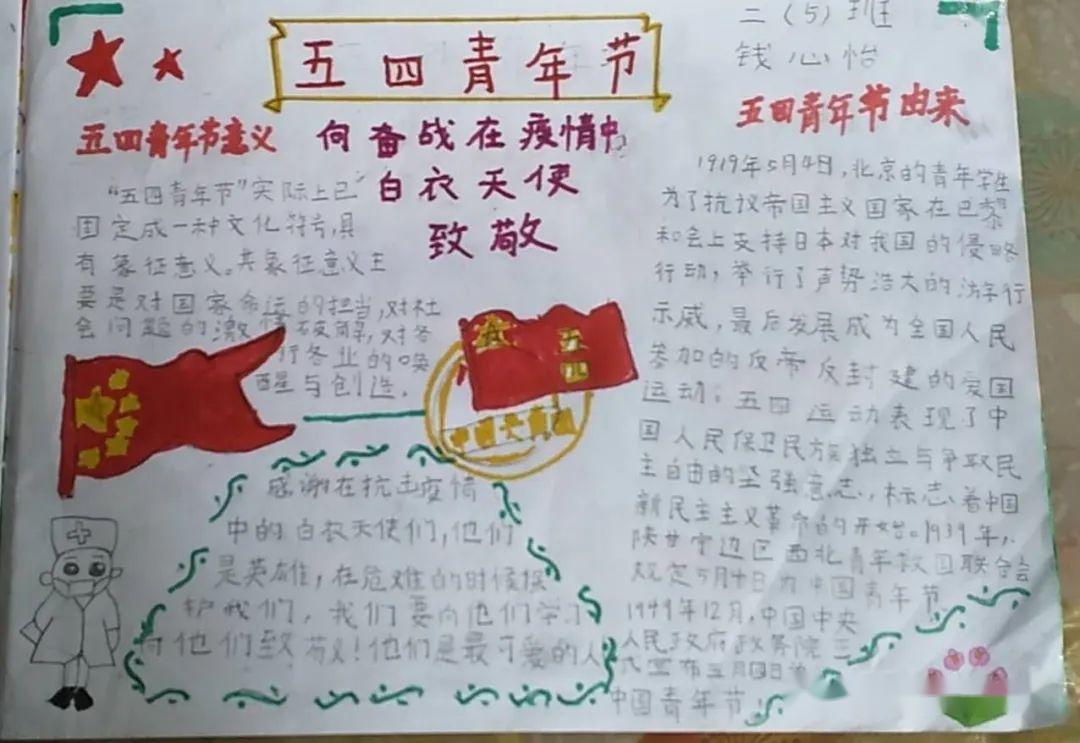 二（5）班
钱心怡
五四青年节
五四青年节意义
向奋战在疫情中
白衣天使
致敬
"五四青年节"实际上已
固定成一种文化符号,具
有象征意义。其象征意义主
要是对国家命运的担当,对社
会问题的激情破解,对各
行各业的唤
醒与创造.
五四
感谢在抗击疫情
中的白衣天使们,他们
是英雄,在危难的时候保
护我们,我们要向他们学习
向他们致敬!他们是最可爱的人
五四青年节由来
1919年5月4日,北京的青年学生
为了抗议帝国主义国家在巴黎
和会上支持日本对我国的侵略
行动,举行了声势浩大的游行
示威,最后发展成为全国人民
参加的反帝反封建的爱国
运动;五四运动表现了中
国人民保卫民族独立与争取民
主自由的坚强意志,标志着中国
新民主主义革命的开始。1939年,
陕甘宁边区西北青年救国联合会
规定5月4日为中国青年节
1949年12月,中国中央
人民政府政务院正
式宣布五月四日为
中国青年节